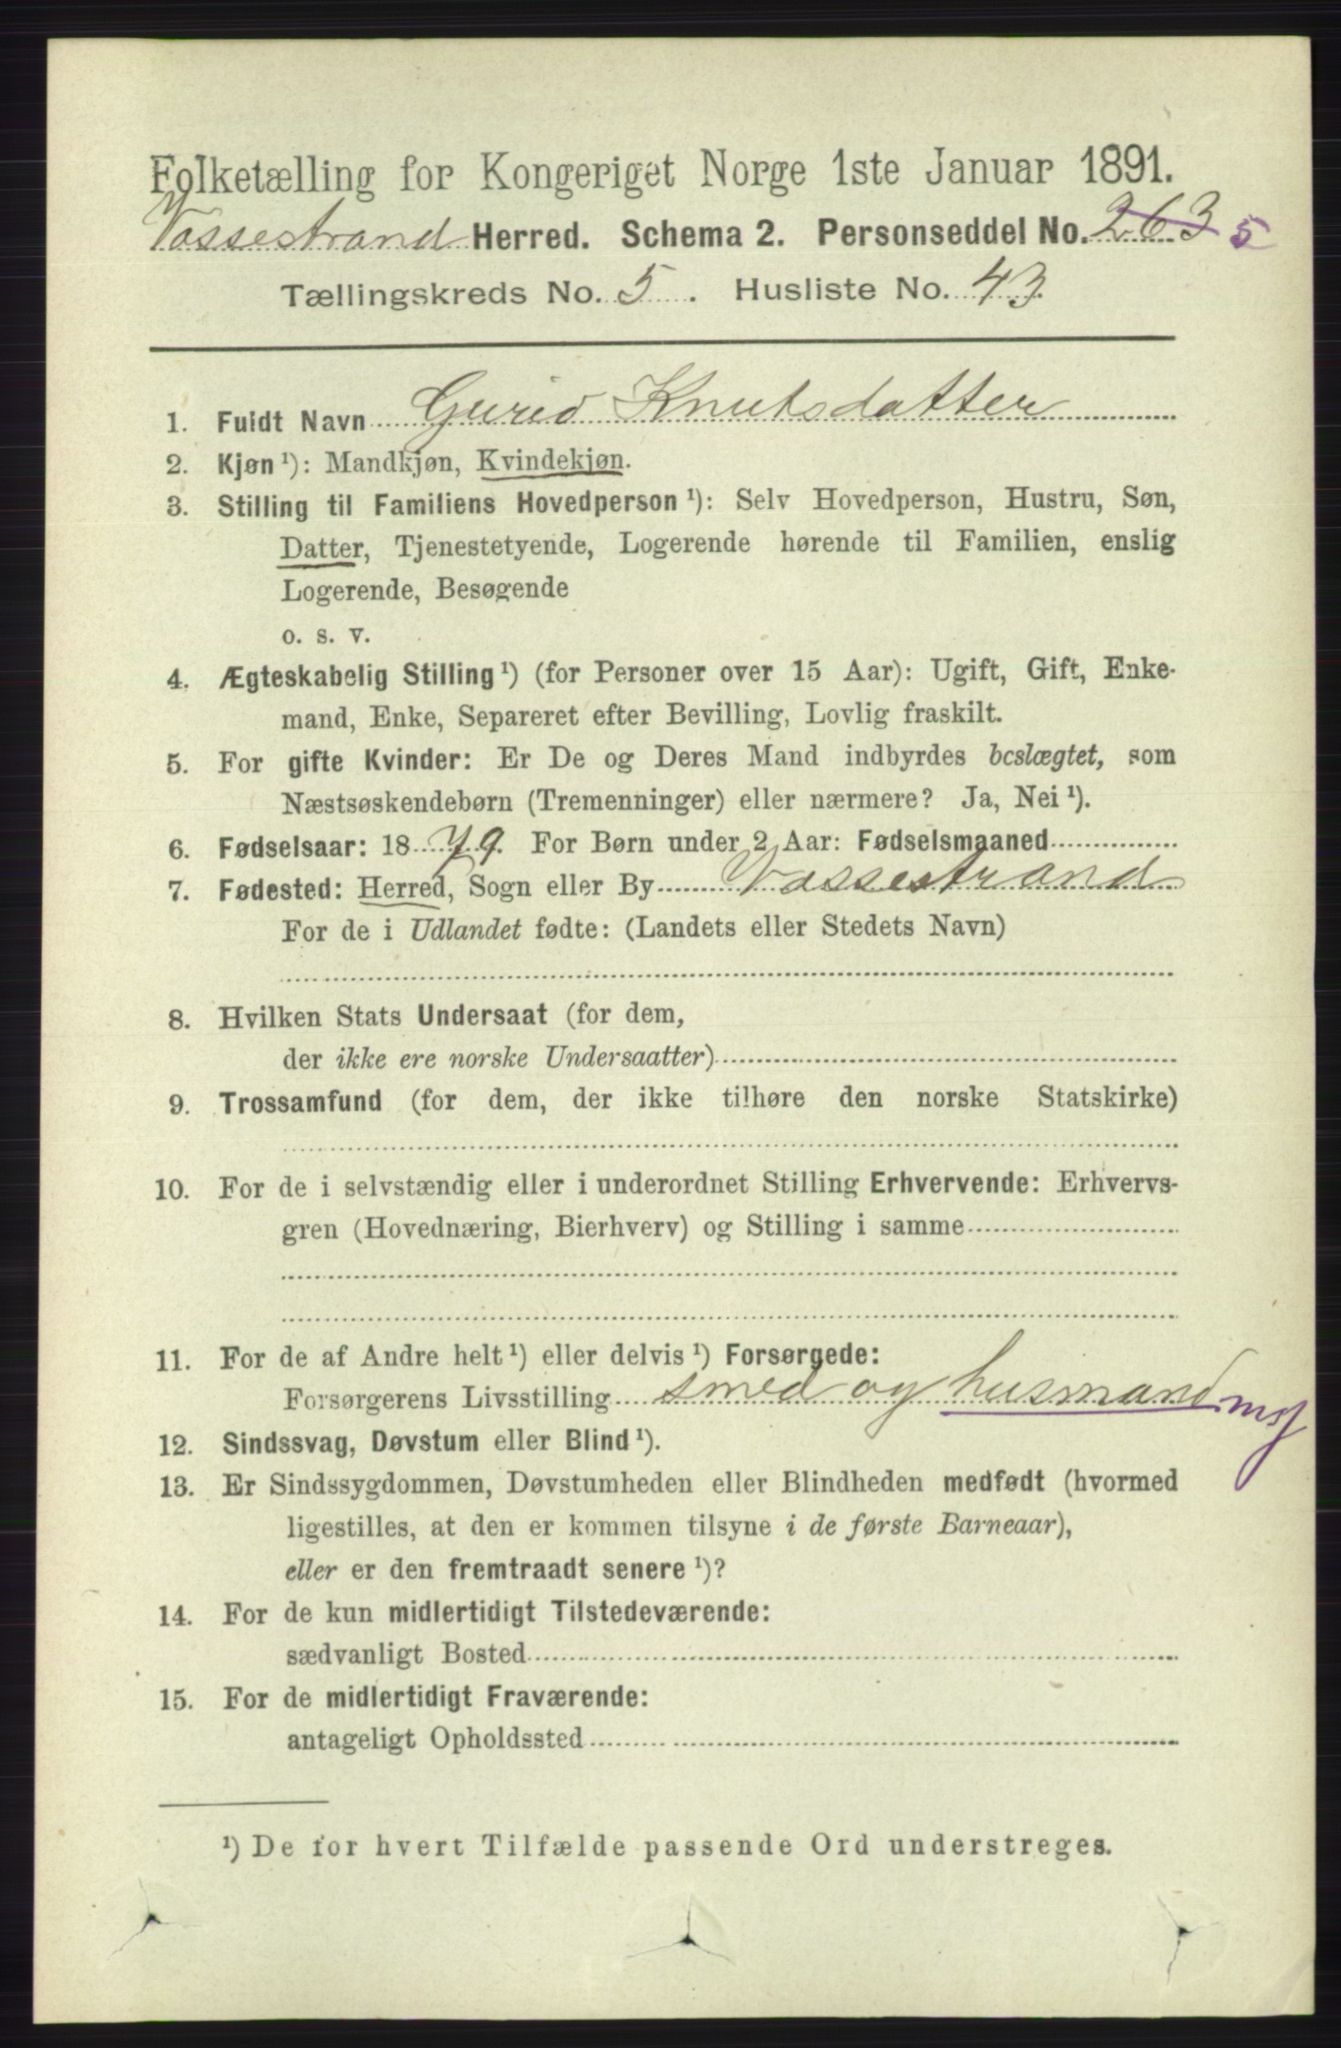 Folketælling for Kongeriget Norge 1ste Januar 1891.
Vossestrand Herred. Schema 2. Personseddel No. 263 5
Tællingskreds No. 5. Husliste No. 43.
1. Fuldt Navn Gurid Knutsdatter
2. Kjøn ¹): Mandkjøn, Kvindekjøn.
3. Stilling til Familiens Hovedperson ¹): Selv Hovedperson, Hustru, Søn,
Datter, Tjenestetyende, Logerende hørende til Familien, enslig
Logerende, Besøgende
o. s. v.
4. Ægteskabelig Stilling ¹) (for Personer over 15 Aar): Ugift, Gift, Enke-
mand, Enke, Separeret efter Bevilling, Lovlig fraskilt.
5. For gifte Kvinder: Er De og Deres Mand indbyrdes beslægtet, som
Næstsøskendebørn (Tremenninger) eller nærmere? Ja, Nei ¹).
6. Fødselsaar: 1879. For Børn under 2 Aar: Fødselsmaaned
7. Fødested: Herred, Sogn eller By Vossestrand
For de i Udlandet fødte: (Landets eller Stedets Navn)
8. Hvilken Stats Undersaat (for dem,
der ikke ere norske Undersaatter)
9. Trossamfund (for dem, der ikke tilhøre den norske Statskirke)
10. For de i selvstændig eller i underordnet Stilling Erhvervende: Erhvervs-
gren (Hovednæring, Bierhverv) og Stilling i samme
11. For de af Andre helt ¹) eller delvis ¹) Forsørgede:
Forsørgerens Livsstilling smed og husmand mj
12. Sindssvag, Døvstum eller Blind ¹).
13. Er Sindssygdommen, Døvstumheden eller Blindheden medfødt (hvormed
ligestilles, at den er kommen tilsyne i de første Barneaar),
eller er den fremtraadt senere ¹)?
14. For de kun midlertidigt Tilstedeværende:
sædvanligt Bosted
15. For de midlertidigt Fraværende:
antageligt Opholdssted
¹) De for hvert Tilfælde passende Ord understreges.